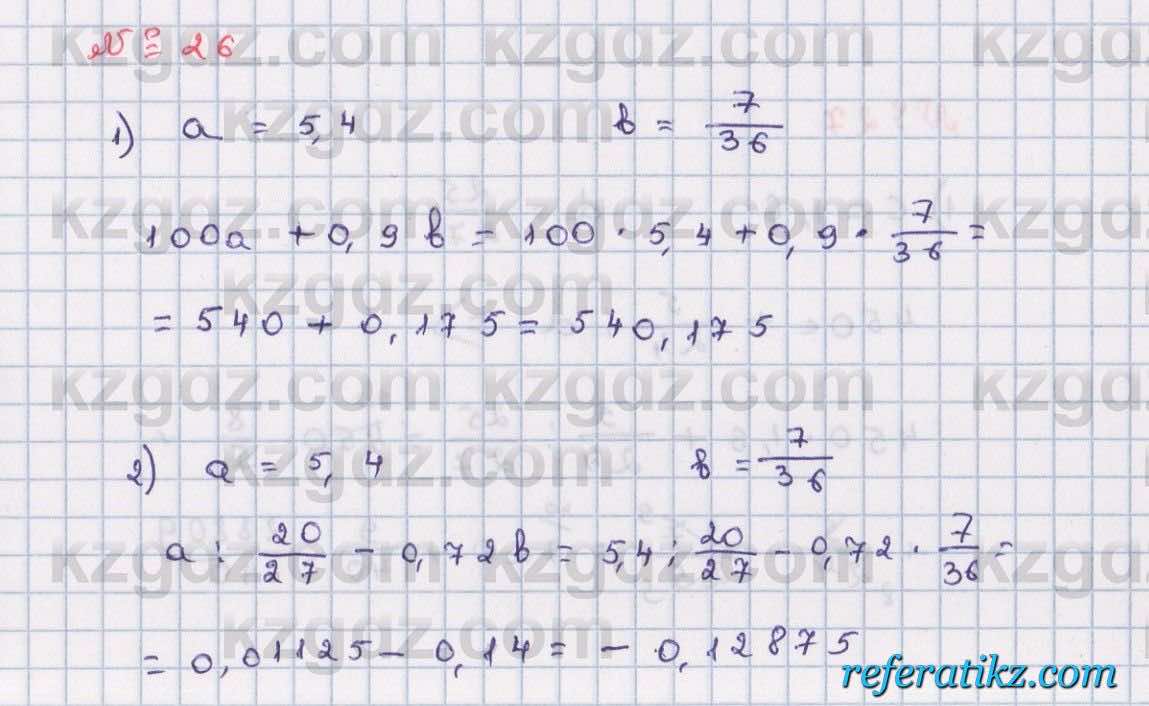 № 26
1) a = 5,4 b = 7/36
100a + 0,9 b = 100 · 5,4 + 0,9 · 7/36 =
= 540 + 0,175 = 540,175
2) a = 5,4 b = 7/36
a : 20/27 - 0,72 b = 5,4 : 20/27 - 0,72 · 7/36 =
= 0,01125 - 0,14 = - 0,12875
referatikz.com
kzgdz.com